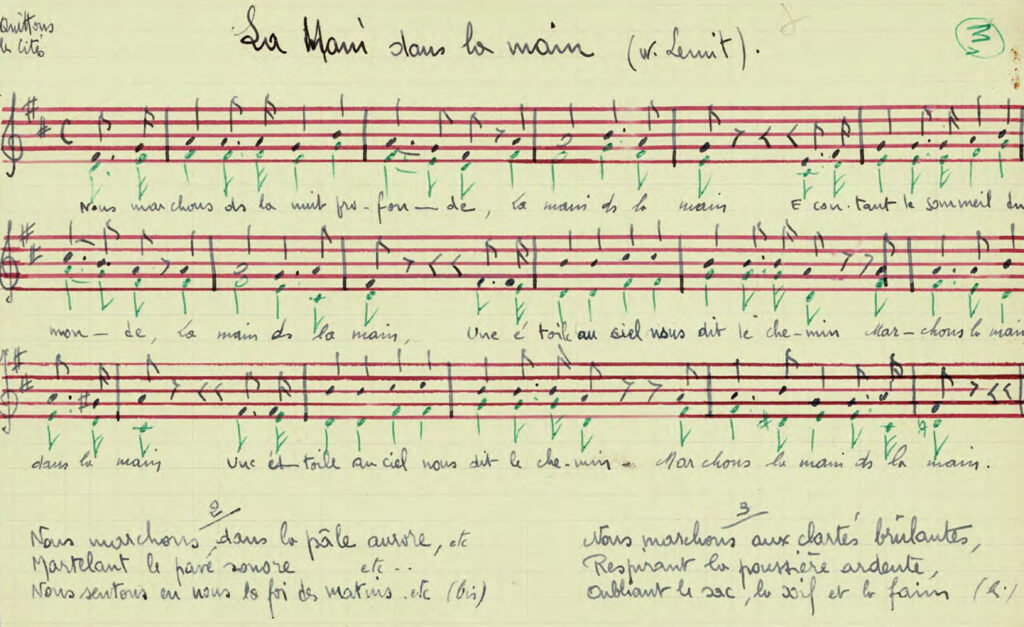 Quittons
la Cité
La Main dans la main (W. Lemit).
M
C
Nous marchons ds la nuit pro-fon-de, La main ds la main E cou-tant le sommeil du
mon-de, La main ds la main, Une é toile au ciel nous dit le che-min Mar-chons la main
dans la main Une é-toile au ciel nous dit le che-min - Mar chons la main ds la main.
2
Nous marchons, dans la pâle aurore, etc
Martelant le pavé sonore etc..
Nous sentons en nous la foi des matins. etc (bis)
3
Nous marchons aux clartés brûlantes,
Respirant la poussière ardente,
Oubliant le sac, la soif et la faim